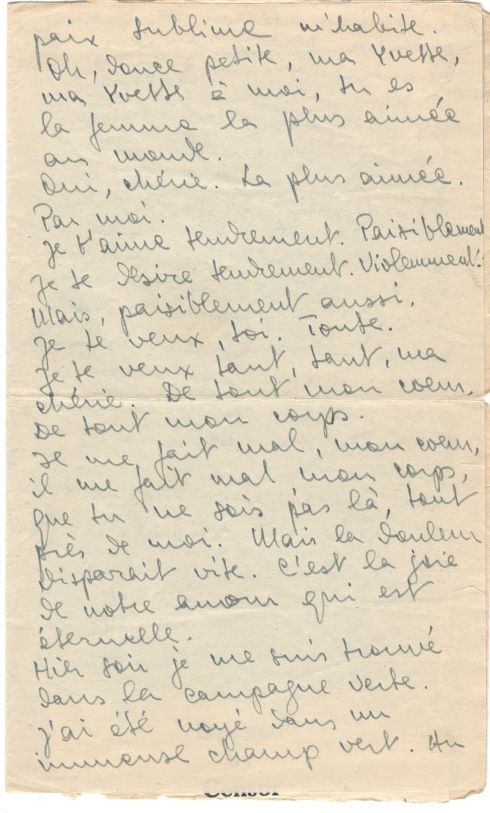 paix sublime m'habite.
Oh, douce petite, ma Yvette,
ma Yvette à moi, tu es
la femme la plus aimée
au monde.
Oui, chérie. La plus aimée.
Par moi.
Je t'aime tendrement. Paisiblement
Je te désire tendrement. Violemment!
Mais, paisiblement aussi.
Je te veux, toi. Toute.
Je te veux tant, tant, ma
chérie. De tout mon coeur,
De tout mon corps.
Il me fait mal, mon coeur,
il me fait mal mon corps,
que tu ne sois pas là, tout
près de moi. Mais la douleur
disparait vite. C'est la joie
de notre amour qui est
éternelle.
Hier soir je me suis trouvé
dans la campagne verte.
J'ai été noyé dans un
immense champ vert. Au
Censor